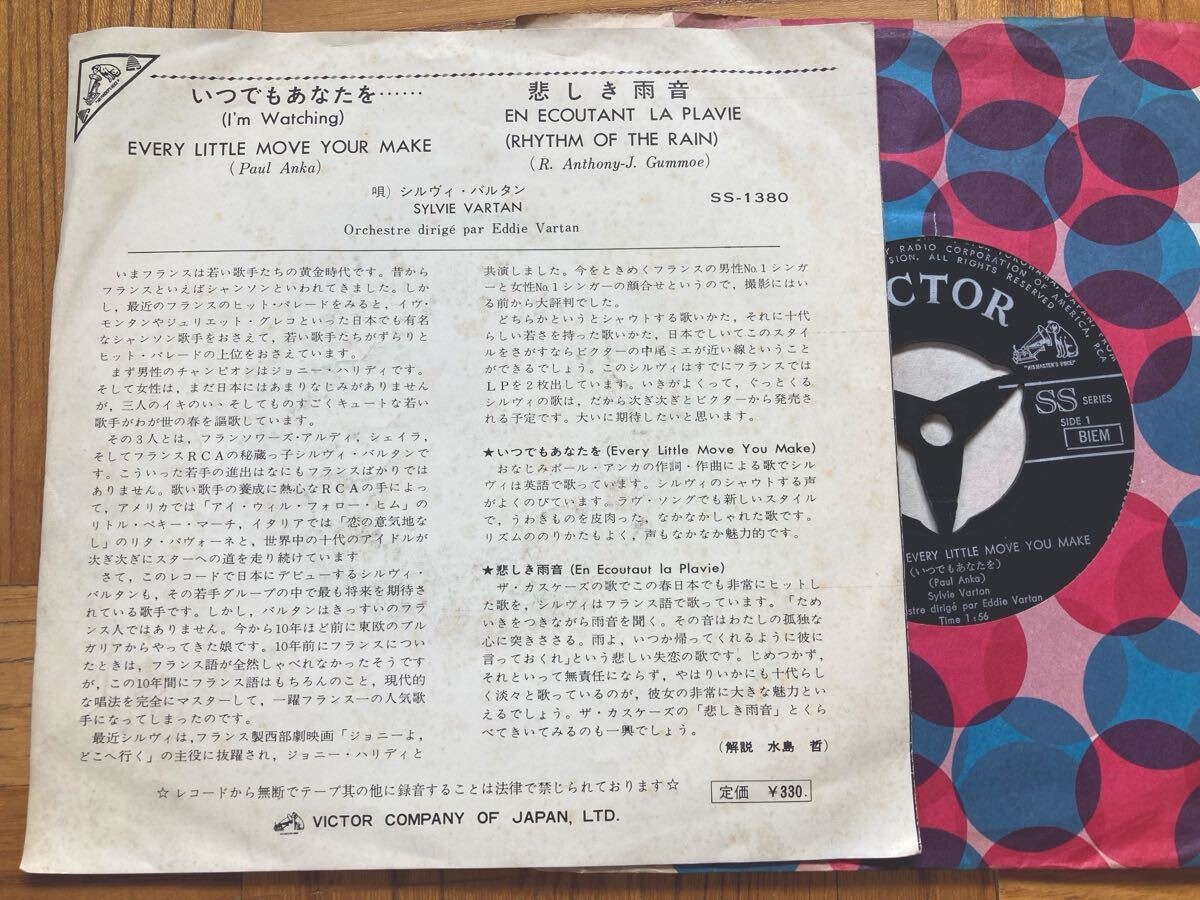 いつでもあなたを……
(I'm Watching)
EVERY LITTLE MOVE YOUR MAKE
(Paul Anka)
悲しき雨音
EN ECOUTANT LA PLAVIE
(RHYTHM OF THE RAIN)
(R. Anthony-J. Gummoe)
唄) シルヴィ・バルタン
SYLVIE VARTAN
SS-1380
Orchestre dirigé par Eddie Vartan
いまフランスは若い歌手たちの黄金時代です。昔から
フランスといえばシャンソンといわれてきました。しか
し、最近のフランスのヒット・パレードをみると、イヴ・
モンタンやジュリエット・グレコといった日本でも有名
なシャンソン歌手をおさえて、若い歌手たちがずらりと
ヒット・パレードの上位をおさえています。
まず男性のチャンピオンはジョニー・ハリディです。
そして女性は、まだ日本にはあまりなじみがありません
が、三人のイキのいい、そしてものすごくキュートな若い
歌手がわが世の春を謳歌しています。
その3人とは、フランソワーズ・アルディ、シェイラ、
そしてフランスRCAの秘蔵っ子シルヴィ・バルタンで
す。こういった若手の進出はなにもフランスばかりでは
ありません。歌い歌手の養成に熱心なRCAの手によっ
て、アメリカでは「アイ・ウィル・フォロー・ヒム」の
リトル・ペギー・マーチ、イタリアでは「恋の意気地な
し」のリタ・パヴォーネと、世界中の十代のアイドルが
次ぎ次ぎにスターへの道を走り続けています
さて、このレコードで日本にデビューするシルヴィ・
バルタンも、その若手グループの中で最も将来を期待さ
れている歌手です。しかし、バルタンはきっすいのフラ
ンス人ではありません。今から10年ほど前に東欧のブル
ガリアからやってきた娘です。10年前にフランスについ
たときは、フランス語が全然しゃべれなかったそうです
が、この10年間にフランス語はもちろんのこと、現代的
な唱法を完全にマスターして、一躍フランス一の人気歌
手になってしまったのです。
最近シルヴィは、フランス製西部劇映画「ジョニーよ、
どこへ行く」の主役に抜躍され、ジョニー・ハリディと
共演しました。今をときめくフランスの男性No.1シンガ
ーと女性No.1シンガーの顔合せというので、撮影にはい
る前から大評判でした。
どちらかというとシャウトする歌いかた、それに十代
らしい若さを持った歌いかた、日本でしいてこのスタイ
ルをさがすならビクターの中尾ミエが近い線ということ
ができるでしょう。このシルヴィはすでにフランスでは
LPを2枚出しています。いきがよくって、ぐっとくる
シルヴィの歌は、だから次ぎ次ぎとビクターから発売さ
れる予定です。大いに期待したいと思います。
★いつでもあなたを (Every Little Move You Make)
おなじみポール・アンカの作詞・作曲による歌でシル
ヴィは英語で歌っています。シルヴィのシャウトする声
がよくのびています。ラヴ・ソングでも新しいスタイル
で、うわきものを皮肉った、なかなかしゃれた歌です。
リズムののりかたもよく、声もなかなか魅力的です。
★悲しき雨音 (En Ecoutaut la Plavie)
ザ・カスケーズの歌でこの春日本でも非常にヒットし
た歌を、シルヴィはフランス語で歌っています。「ため
いきをつきながら雨音を聞く。その音はわたしの孤独な
心に突きささる。雨よ、いつか帰ってくれるように彼に
言っておくれ」という悲しい失恋の歌です。じめつかず、
それといって無責任にならず、やはりいかにも十代らし
く淡々と歌っているのが、彼女の非常に大きな魅力とい
えるでしょう。ザ・カスケーズの「悲しき雨音」とくら
べてきいてみるのも一興でしょう。
(解説 水島 哲)
☆レコードから無断でテープ其の他に録音することは法律で禁じられております☆
定価 ¥330.
VICTOR COMPANY OF JAPAN, LTD.
RADIO CORPORATION OF AMERICA, RCA
ALL RIGHTS RESERVED
CTOR
"HIS MASTER'S VOICE"
SS SERIES
SIDE 1
BIEM
EVERY LITTLE MOVE YOU MAKE
(いつでもあなたを)
(Paul Anka)
Sylvie Vartan
stre dirigé par Eddie Vartan
Time 1:56